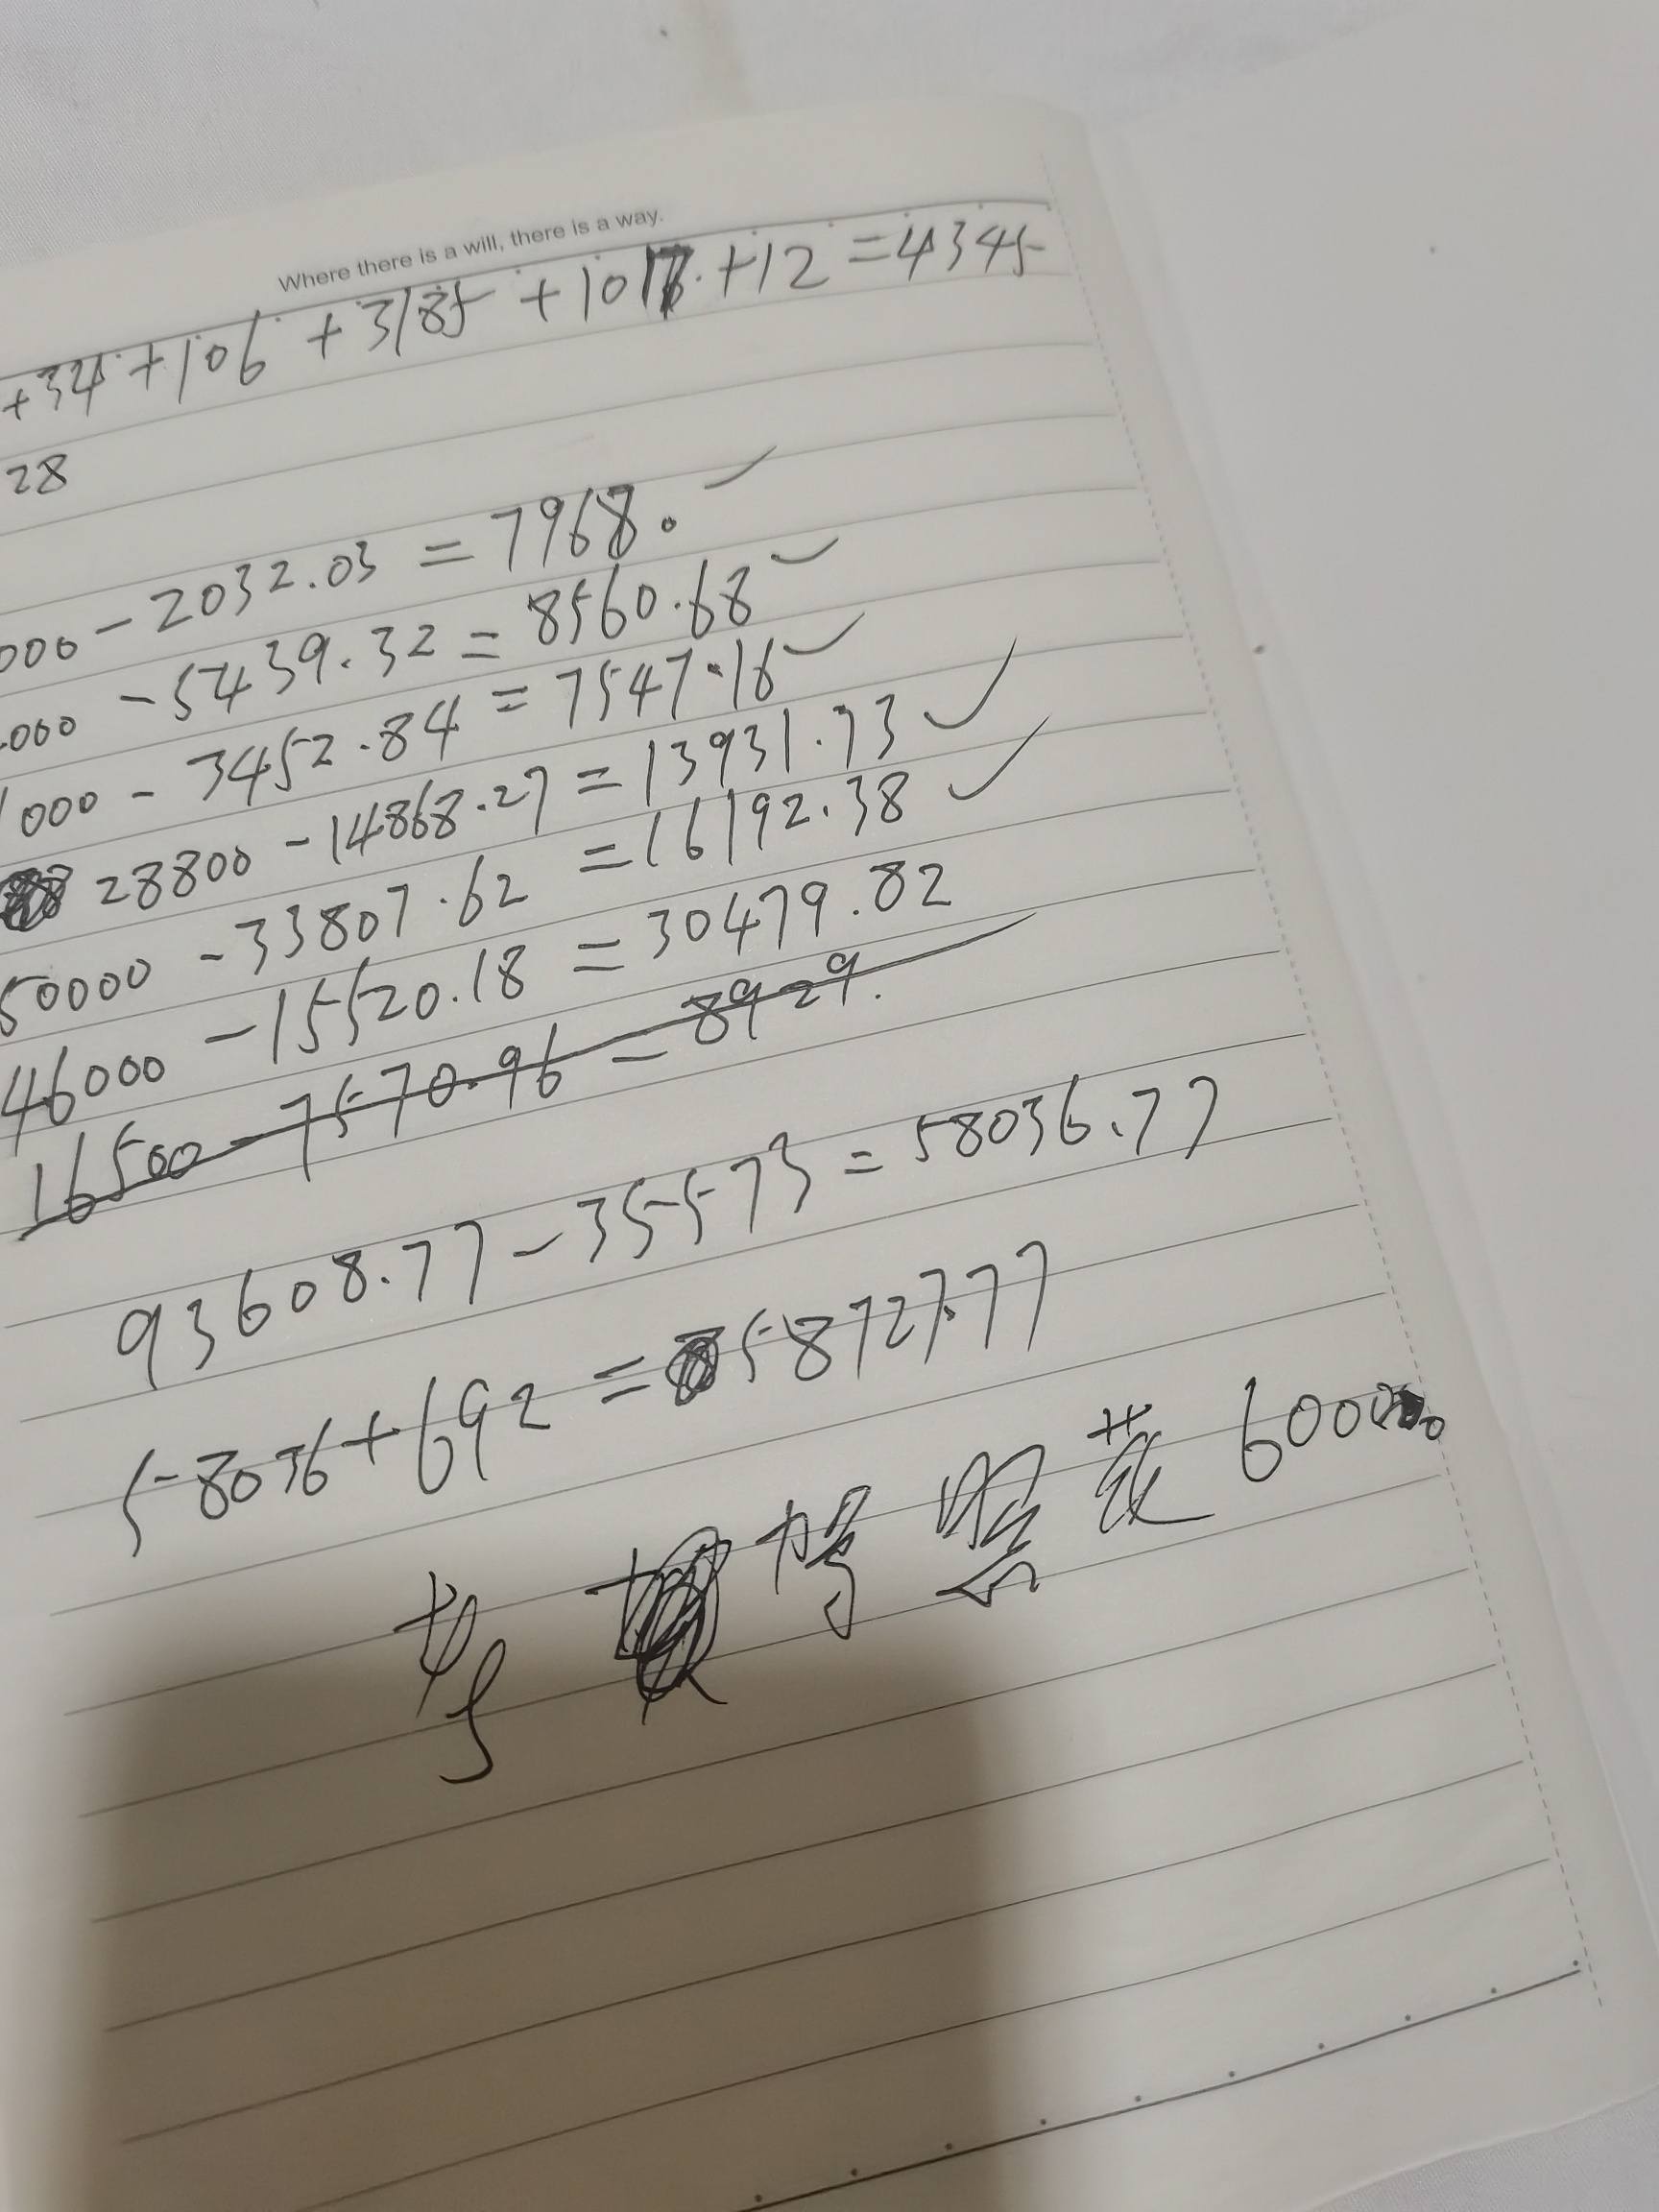 Where there is a will, there is a way.
+34+106+3185+1017+12=4345
28
000-2032.03=7968.
000-5439.32=8560.68
1000-3452.84=7547.16
28800-14868.27=13931.73
50000-33807.62=16192.38
46000-15520.18=30479.82
16500-7570.96=8929.
93608.77-35573=58036.77
58036+692=58727.77
考驾照花6000